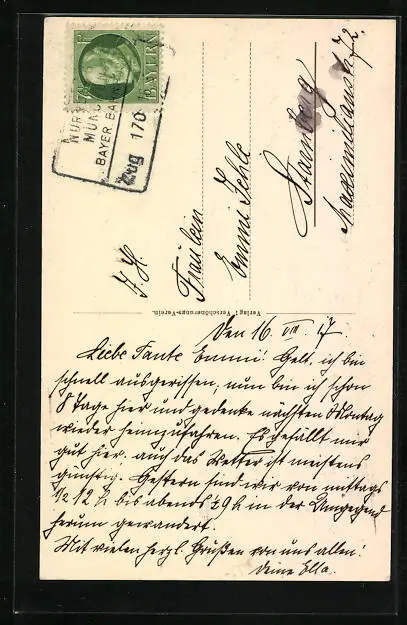 BAYERN
NÜR
MÜN
BAYER. BA
Zug 170
I. H.
Fräulein
Emmi Jehle
Starnberg
Maximilianstr. 72.
Verlag: Verschönerungs-Verein.
Den 16. VIII. 17.
Liebe Tante Emmi! Gelt, ich bin
schnell ausgerissen, nun bin ich schon
8 Tage hier und gedenke nächsten Montag
wieder heimzufahren. Es gefällt mir
gut hier, auch das Wetter ist meistens
günstig. Gestern sind wir von mittags
1/2 12 h bis abends 1/2 9 h in der Umgegend
herum gewandert.
Mit vielen herzl. Grüßen von uns allen!
Deine Ella.